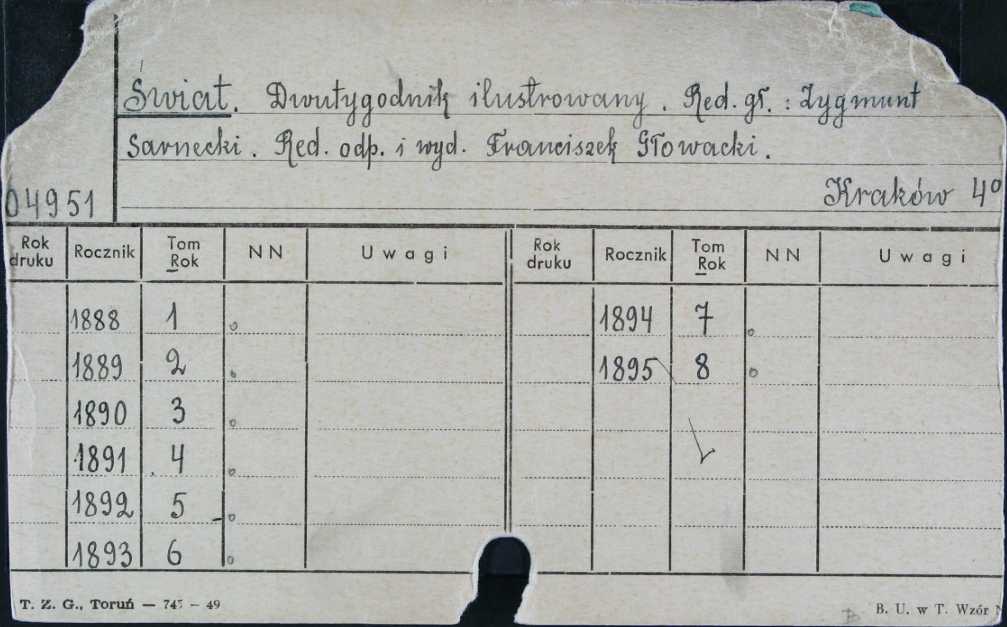 Świat. Dwutygodnik ilustrowany. Red. gł.: Zygmunt
Sarnecki. Red. odp. i wyd. Franciszek Głowacki.
Kraków 4°
04951
Rok druku Rocznik Tom Rok NN Uwagi Rok druku Rocznik Tom Rok NN Uwagi
1888 1 1894 7
1889 2 1895 8
1890 3
1891 4
1892 5
1893 6
T. Z. G., Toruń — 745 – 49 B. U. w T. Wzór